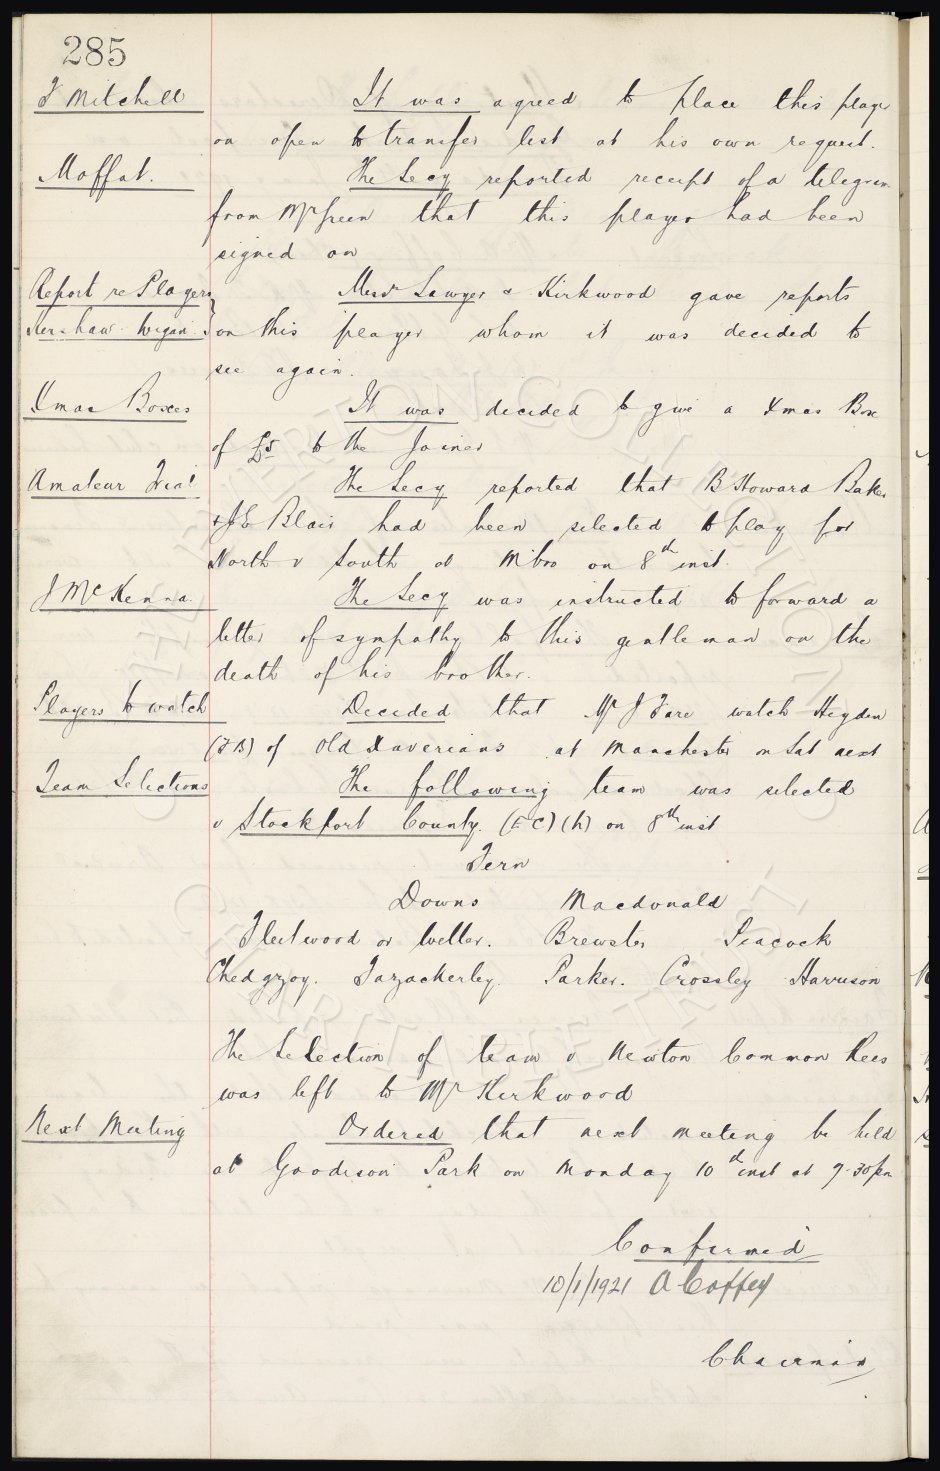 285
F Mitchell It was agreed to place this player
on open to transfer list at his own request.
Moffat. The Secy reported receipt of a telegram
from Mr Green that this player had been
signed on
Report re Players Messrs Sawyer & Kirkwood gave reports
Kershaw Wigan on this player whom it was decided to
see again.
Xmas Boxes It was decided to give a Xmas Box
of £5 to the Joiner
Amateur Trial The Secy reported that B Howard Baker
& J E Blair had been selected to play for
North v South at M'bro on 8th inst.
J McKenna. The Secy was instructed to forward a
letter of sympathy to this gentleman on the
death of his brother.
Players to watch Decided that Mr J Fare watch Heyden
(FB) of Old Xaverians at Manchester on Sat next
Team Selections The following team was selected
v Stockport County. (EC) (h) on 8th inst
Fern
Downs Macdonald
Fleetwood or Weller. Brewster Peacock
Chedgzoy. Fazackerley. Parker. Crossley Harrison
The Selection of team v Newton Common Recs
was left to Mr Kirkwood
Next Meeting Ordered that next meeting be held
at Goodison Park on Monday 10th inst at 7.30pm
Confirmed
10/1/1921 A Coffey
Chairman